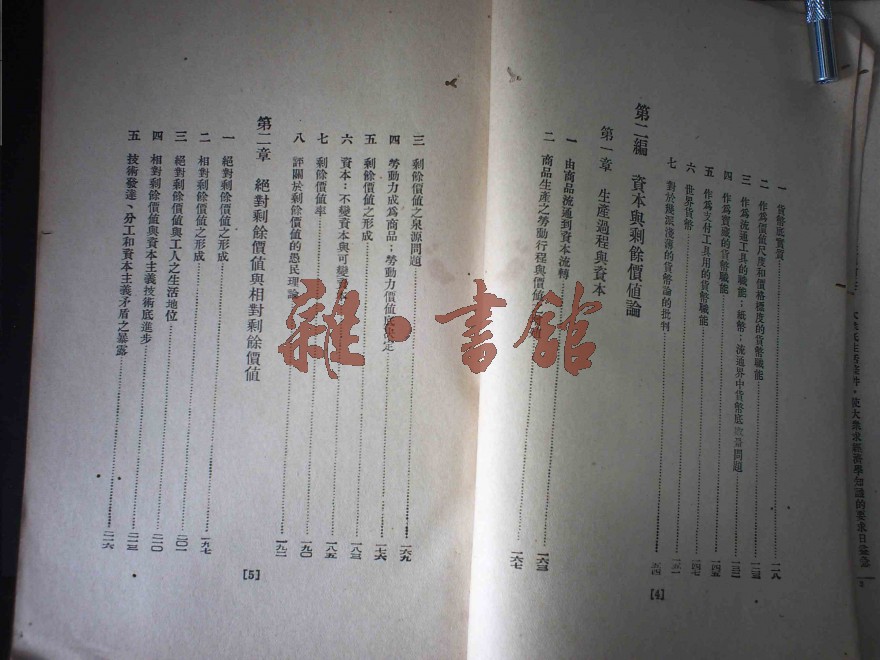 一 貨幣底實質 一一八
二 作為價值尺度和價格標度的貨幣職能 一二三
三 作為流通工具的職能；紙幣；流通界中貨幣底 問題 一三二
四 作為寶藏的貨幣職能
五 作為支付工具用的貨幣職能 一四五
六 世界貨幣 一四七
七 對於幾派淺薄的貨幣論的批判 一五一
第二編 資本與剩餘價値論
第一章 生產過程與資本
一 由商品流通到資本流轉 一六三
二 商品生產之勞動行程與價値 一六七
[4]
三 剩餘價値之泉源問題 一六九
四 勞動力成為商品；勞動力價値底 定 一七六
五 剩餘價値之形成 一八三
六 資本：不變資本與可變資 一八五
七 剩餘價値率 一九〇
八 評關於剩餘價値的愚民理論 一九二
第二章 絕對剩餘價値與相對剩餘價値
一 絕對剩餘價値之形成
二 相對剩餘價値之形成 一九七
三 絕對剩餘價値與工人之生活地位 二〇一
四 相對剩餘價値與資本主義技術底進步 二一〇
五 技術發達、分工和資本主義矛盾之暴露 二一六
[5]
雜·書館